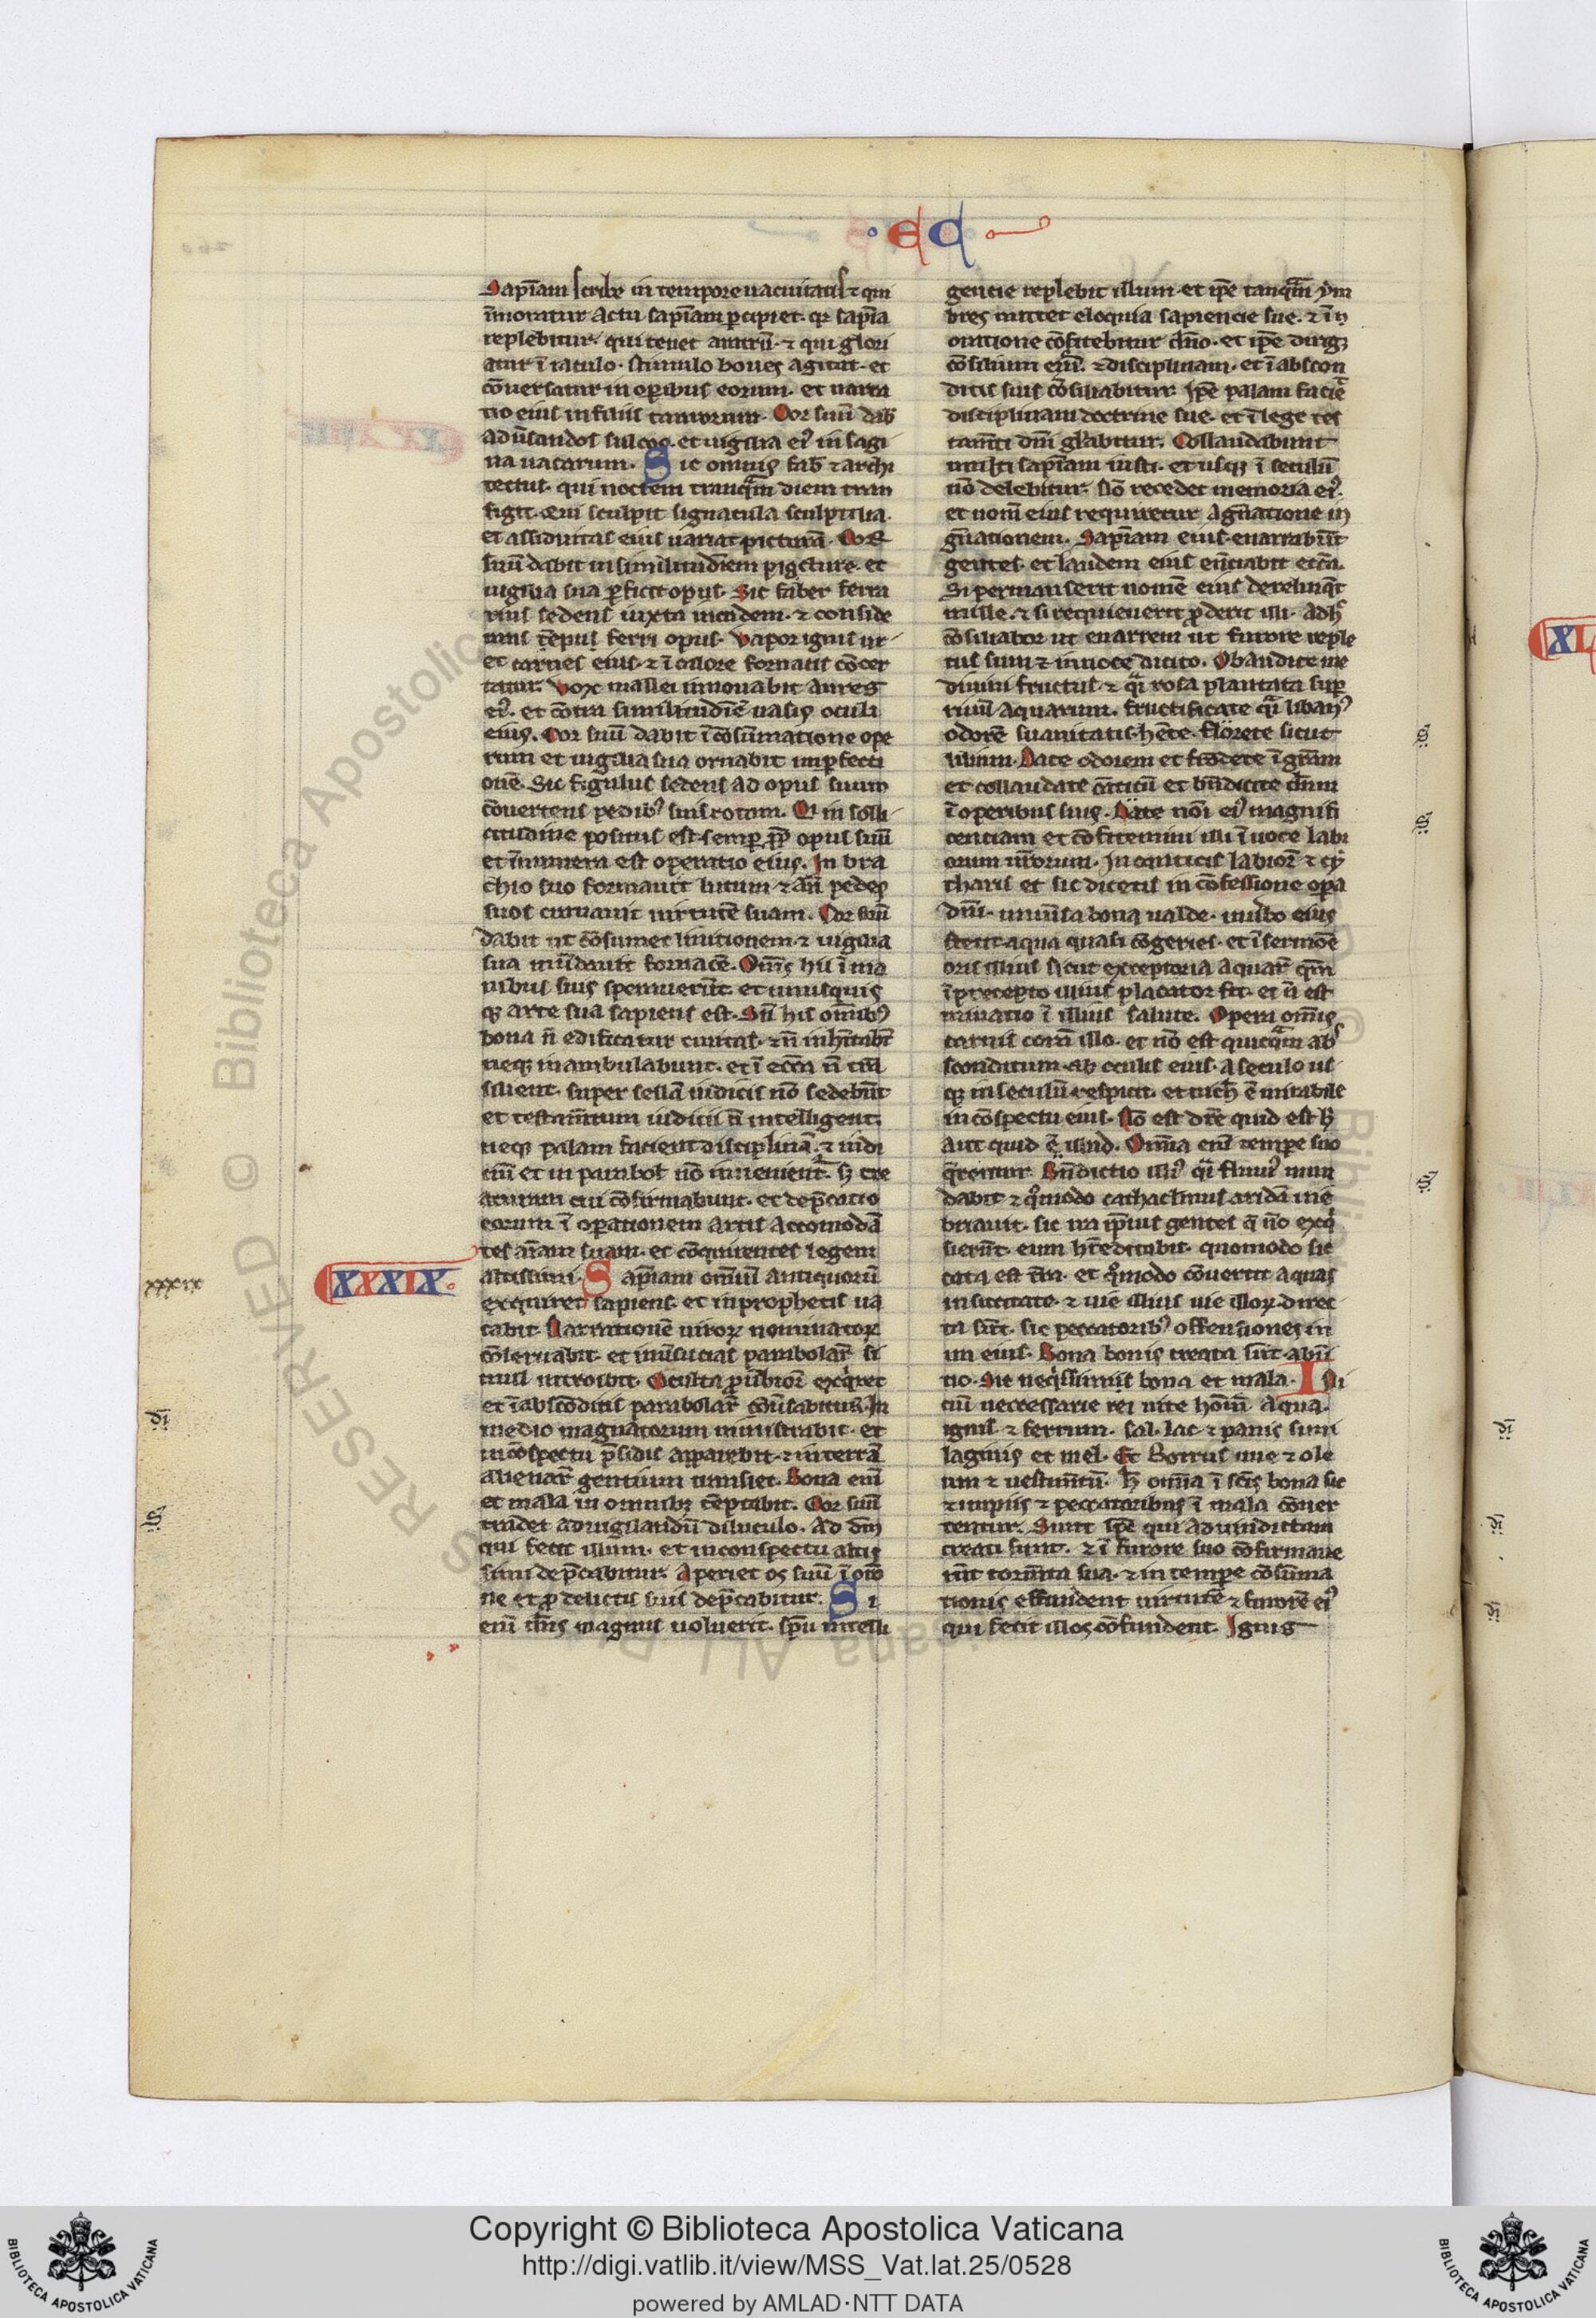 · E C
Sapīam scribe in tempore uacuitatis ⁊ qui
īmoratur actu sapīam ꝑcipiet. qꝛ sapīa
replebitur. qui tenet aratrū. ⁊ qui glori
atur ī iaculo. stimulo boues agitat. et
cōuersatur in oꝑibus eorum. et narra
tio eius in filiis taurorum. Cor suū dab
ad ūsandos sulcos. et uigilia eiꝰ in sagi
na uacarum. Sic omnis fab̄ ⁊ archi
tectus. qui noctem tanq̄m diem tran
sigit. qui sculpit signacula sculptilia.
et assiduitas eius uariat picturā. Cor
suū dabit in similitudīem pigcture. et
uigilia sua ꝑficit opus. Sic faber ferra
rius sedens iuxta incudem. ⁊ conside
rans opus ferri. Vapor ignis ur
et carnes eius. ⁊ ī calore fornacis cōcer
tatur. Vox mallei innouabit aures
eiꝰ. et cōtra similitudīē uasis oculi
eius. Cor suū dabit ī cōsūmatione ope
rum et uigilia sua ornabit imꝑfecti
onē. Sic figulus sedens ad opus suum
cōuertens pedibꝰ suis rotam. Qi in solli
citudine positus est semꝑ ꝓpꝑ opus suū
et īnumera est operatio eius. In bra
chio suo formauit lutum ⁊ añ pedes
suos curuauit uirtutē suam. Cor suū
dabit ut cōsumet linitionem ⁊ uigilia
sua mūdauit fornacē. Om̄s hii ī ma
nibus suis sperauerūt. et unusquis
qꝫ arte sua sapiens est. Sn̄ his om̄ibꝰ
bona n̄ edificatur ciuitas. ⁊ n̄ inh̄itabt̄
neqꝫ inambulabunt. et ī ecc̄a n̄ trā
silient. super sellā iudicis nō sedebūt
et testam̄tum iudicii n̄ intelligent.
neqꝫ palam facient disciplinā. ⁊ iudi
ciū et in parabol nō inuenient̄. s̄ cre
aturam eui cōfirmabunt. et dep̄catio
eorum ī oꝑationem artis accomodā
tes aīam suam. et cōquirentes legem
altissimi. Sapīam om̄iū antiquorū
exquiret sapiens. et in prophetis ua
cabit. Narrationē uiroꝝ nominatoꝝ
cōseruabit. et in ūsucias parabolaꝝ si
mul introibit. Occulta ꝓūbioꝝ exq̄ret
et ī abscōditis parabolaꝝ cōūsabitur. In
medio magnatorum ministrabit. et
in cōspectu p̄sidis apparebit. ⁊ in terrā
alienaꝝ gentium transiet. Bona enī
et mala in omnibꝫ tēptabit. Cor suū
tradet ad uigilandū diluculo. Ad dm̄
qui fecit illum. et in conspectu altis
simi dep̄cabitur. Aperiet os suū ī oīo
ne et ꝓ delictis suis dep̄cabitur. Si
enī dn̄s magnus uoluerit. spū intelli
XXXIX.
xxxix
gencie replebit illum. et ip̄e tanq̄m ym
bres mittet eloquia sapiencie sue. ⁊ in
oratione cōfitebitur dn̄o. et ip̄e dirigꝫ
cōsilium eiꝰ. ⁊ disciplinam. et ī abscon
ditis suis cōsiliabitur. Ip̄e palam faciet
disciplinam doctrine sue. et ī lege tes
tam̄ti dn̄i gl̄abitur. Collaudabunt
multi sapīam iusti. et usqꝫ ī seculū
nō delebitur. Nō recedet memoria eiꝰ.
et nom̄ eius requiretur a gn̄atione in
gn̄ationem. Sapīam eius enarrabūt
gentes. et laudem eius en̄ciabit ecc̄a.
Si permanserit nomē eius derelinq̄t
mille. ⁊ si requieuerit ꝓderit illi. Adh̄
cōsiliabor ut enarrem ut furore reple
tus sum ⁊ in uoce dicito. Obaudite me
diuini fructus. ⁊ q̄i rosa plantata suꝑ
riuū aquarum. fructificate q̄i libanꝰ
odorē suauitatis hēte. Florete sicut
lilium. Date odorem et frōdete ī grām
et collaudate cāticū et bn̄dicite dn̄m
ī operibus suis. Date nōi eiꝰ magnifi
centiam et cōfitemini illi ī uoce labi
orum ur̄orum. In canticis labioꝝ ⁊ cy
tharis et sic dicetis in cōfessione oꝑa
dn̄i. uniūsa bona ualde. in ūbo eius
stetit aqua quasi cōgeries. et ī sermōe
oris illius sicut exceptoria aquaꝝ. qm̄
ī precepto illius placator fit. et n̄ est
minuatio ī illius salute. Opera om̄is
carnis corā illo. et nō est quicq̄m ab
sconditum ab oculis eius. A seculo us
qꝫ in seculū respicit. et nich̄ ē mirabile
in cōspectu eius. Nō est dr̄e quid est h̄
aut quid ē illud. Om̄a enī tempe suo
q̄rentur. Bn̄dictio illiꝰ q̄i fluuiꝰ inun
dabit ⁊ q̄modo cathaclismus aridā ine
briauit. sic ira ip̄ius gentes q̄ nō exq̄
sierūt. eum hr̄editabit. quomodo sic
cata est trā. et q̄modo cōuertit aquas
in siccitate. ⁊ uie illius uie illoꝝ direc
ta sūt. sic peccatoribꝰ offensiones in
ira eius. Bona bonis creata sūt abīi
tio. Sic neq̄ssimis bona et mala. Ini
ciū neccessarie rei uite hom̄ū. Aqua.
ignis ⁊ ferrum. sal. lac ⁊ panis simi
lagineus et mel. Et Botrus uue ⁊ ole
um ⁊ uestim̄tū. h̄ om̄a ī scīs bona sic
⁊ impiis ⁊ peccatoribus ī mala cōuer
tentur. Sunt spc̄ qui ad uindictam
creati sunt. ⁊ ī furore suo cōfirmaue
rūt torm̄ta sua. ⁊ in tempe cōsūma
tionis effundent uirtutē ⁊ furorē eiꝰ
qui fecit illos cōfundent. Ignis
XL
Copyright © Biblioteca Apostolica Vaticana
http://digi.vatlib.it/view/MSS_Vat.lat.25/0528
powered by AMLAD·NTT DATA
BIBLIOTECA APOSTOLICA VATICANA
BIBLIOTECA APOSTOLICA VATICANA